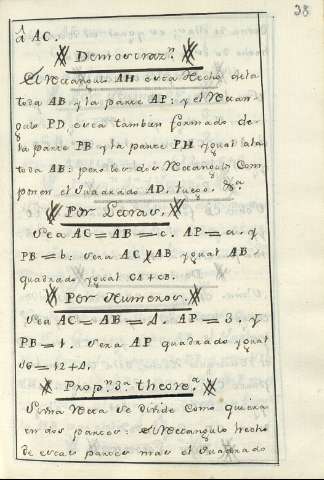 38
á AC.
Demostraz.n
El Rectangulo AH esta hecho dela
toda AB y la parte AP: y el Rectan-
gulo PD, esta tambien formado de
la parte PB y la parte PH ygual ala
toda AB: pero los dos Rectangulos Com-
ponen el Quadrado AD, luego, &a
Por Letras.
Sea AC=AB=c. AP=a. y
PB=b: sera AC X AB ygual AB
quadrado ygual CA+CB.
Por Numeros.
Sea AC=AB=4. AP=3. y
PB=1. sera AP quadrado ygual
16=12+4.
Propn. 3a. theore.a
Si una Recta se divide como quiera
en dos partes: El Rectangulo hecho
de estas partes mas el Quadrado